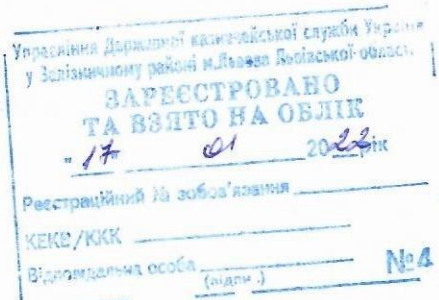 Управління Державної казначейської служби України
у Залізничному районі м.Львова Львівської області
ЗАРЕЄСТРОВАНО
ТА ВЗЯТО НА ОБЛІК
"17" 01 2022рік
Реєстраційний № зобов'язання
КЕКВ/ККК
Відповідальна особа
(підпис) №4